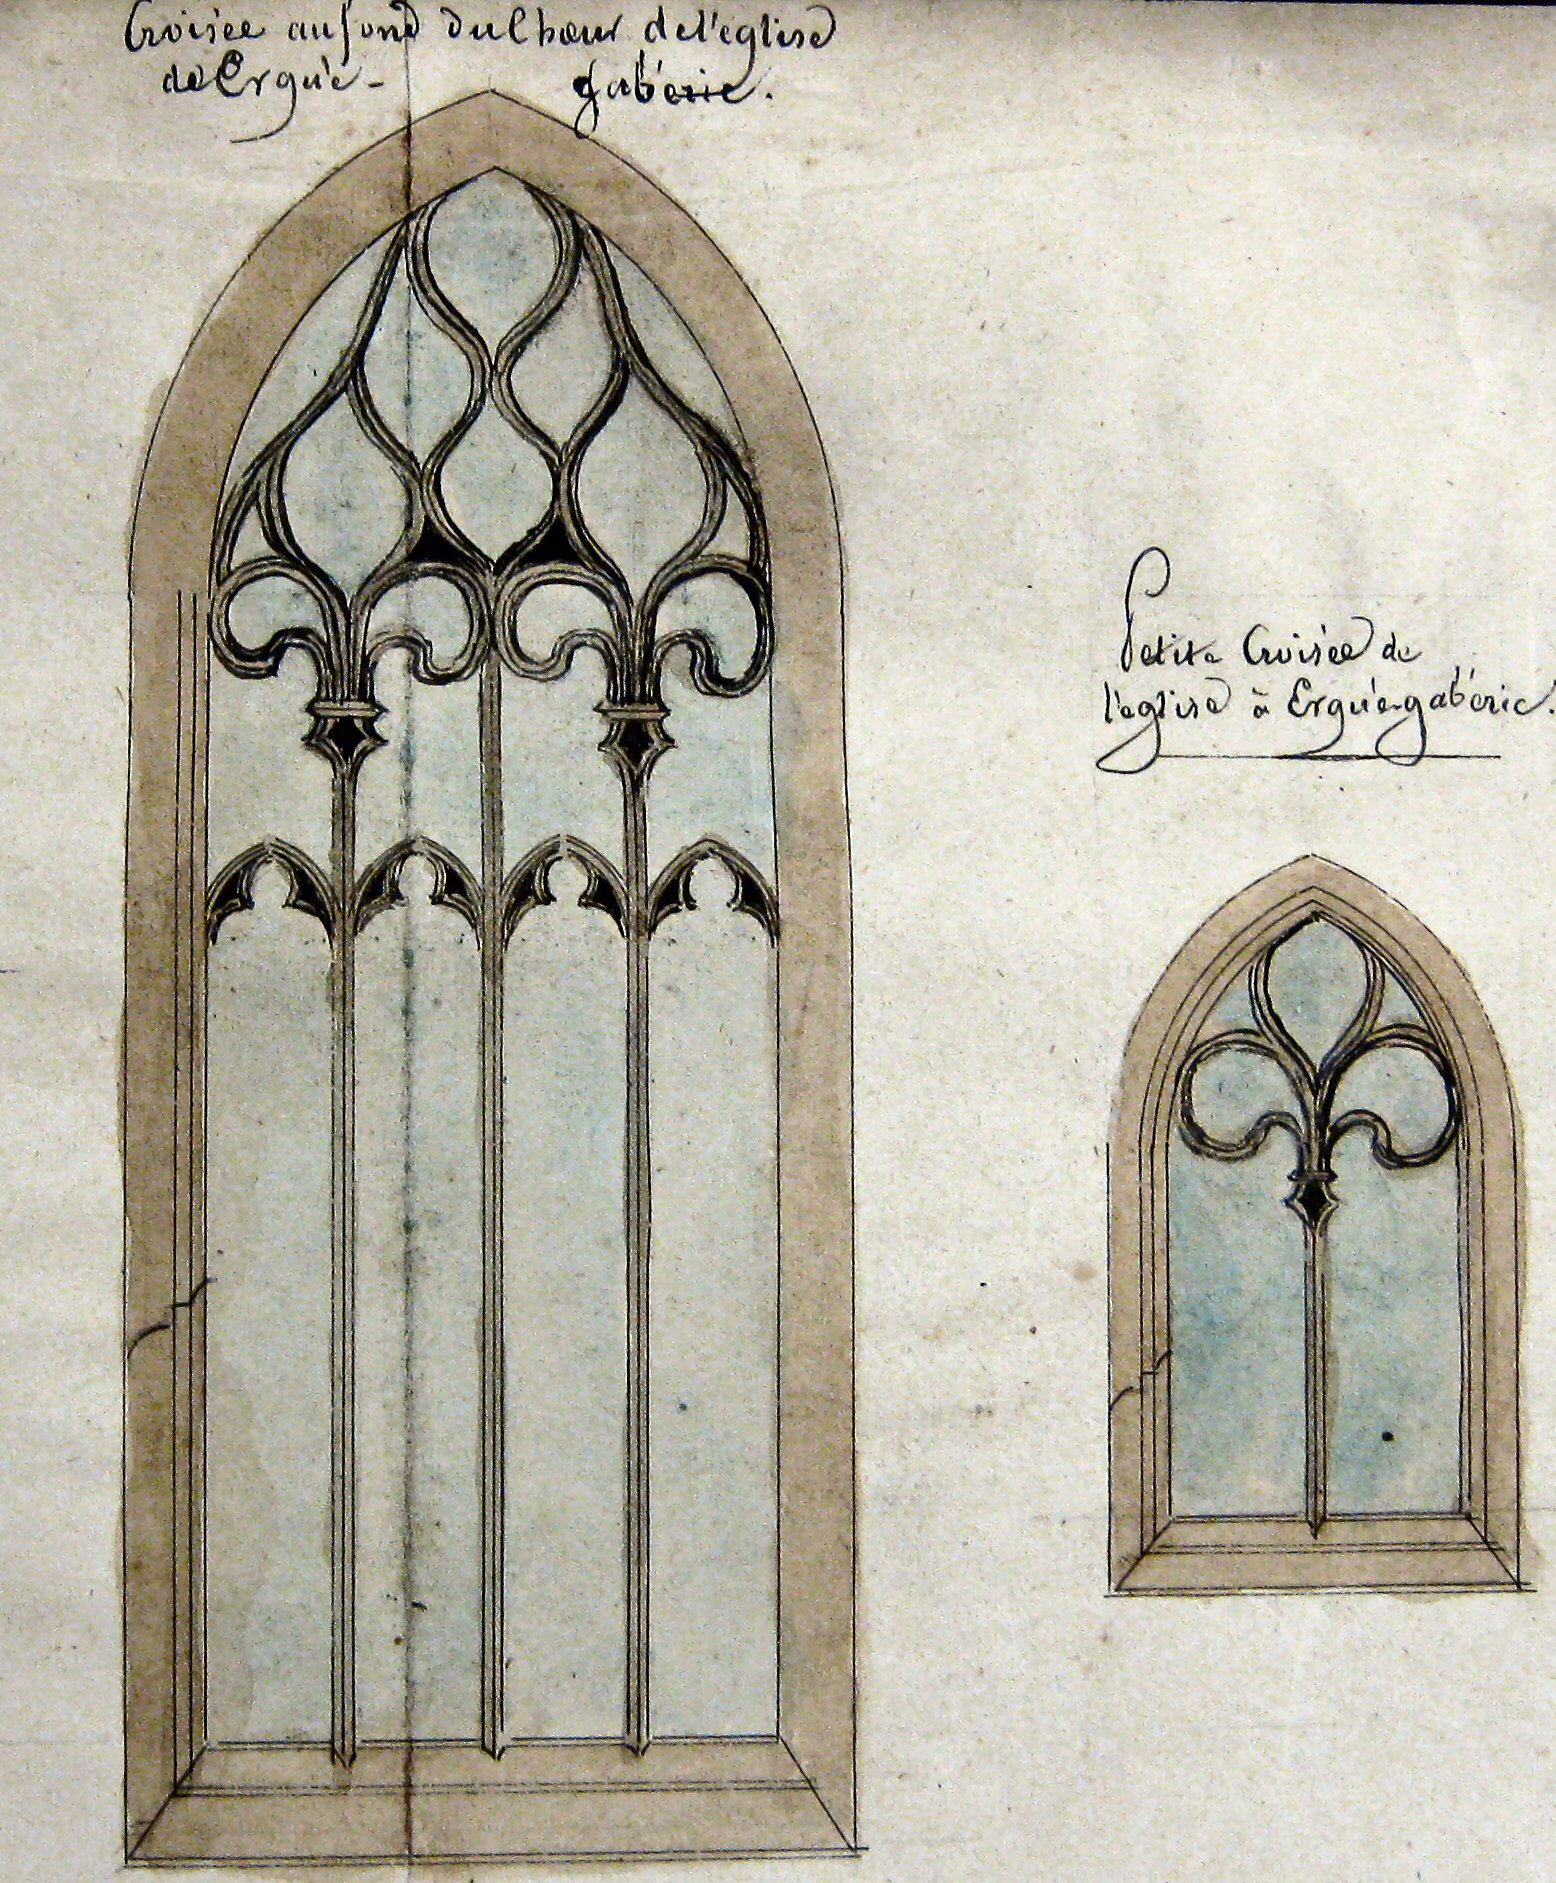 Croisée au fond du Chœur de l'église
de Ergué- gabéric.
Petite Croisée de
l'eglise à Ergué-gabéric.